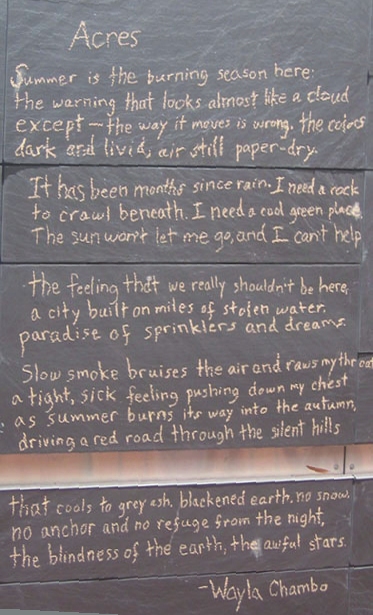 Acres
Summer is the burning season here:
the warning that looks almost like a cloud
except – the way it moves is wrong, the colors
dark and livid, air still paper-dry.
It has been months since rain. I need a rock
to crawl beneath. I need a cool green place.
The sun won't let me go, and I can't help
the feeling that we really shouldn't be here,
a city built on miles of stolen water.
paradise of sprinklers and dreams.
Slow smoke bruises the air and raws my throat
a tight, sick feeling pushing down my chest
as summer burns its way into the autumn,
driving a red road through the silent hills
that cools to grey ash, blackened earth. no snow.
no anchor and no refuge from the night,
the blindness of the earth, the awful stars.
-Wayla Chambo